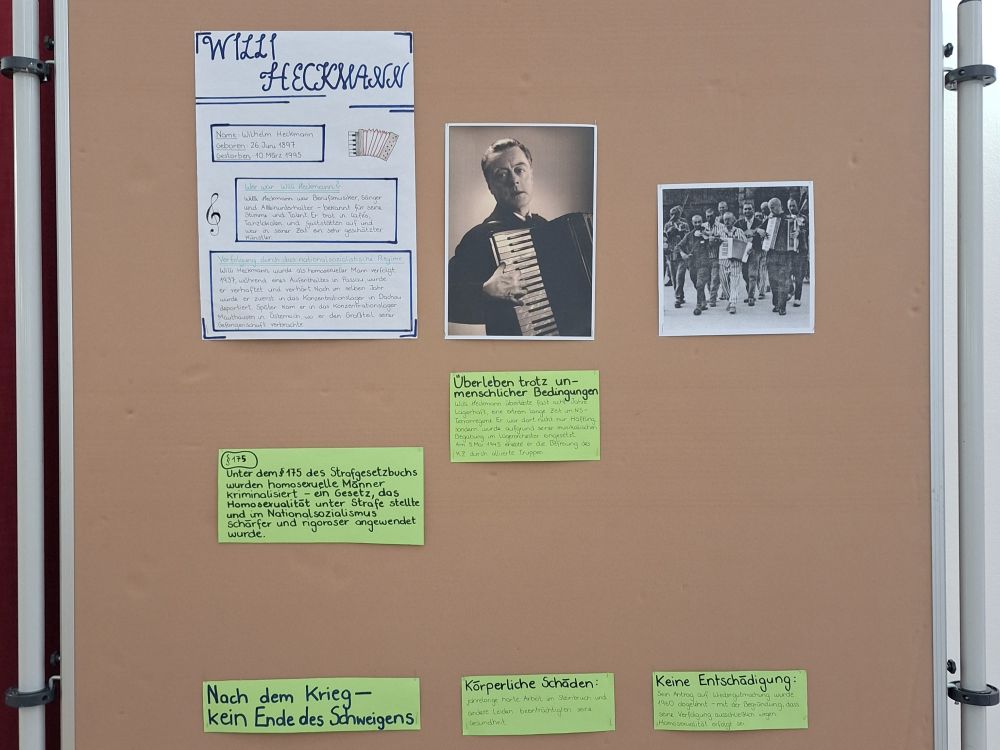 WILLI
HECKMANN
Name: Wilhelm Heckmann
Geboren: 26. Juni 1897
Gestorben: 10. März 1995
Wer war Willi Heckmann?
Willi Heckmann war Berufsmusiker, Sänger
und Alleinunterhalter – bekannt für seine
Stimme und Talent. Er trat in Cafés,
Tanzlokalen und Gaststätten auf und
war in seiner Zeit ein sehr geschätzter
Künstler.
Verfolgung durch das nationalsozialistische Regime
Willi Heckmann wurde als homosexueller Mann verfolgt.
1937, während eines Aufenthaltes in Passau, wurde
er verhaftet und verhört. Noch im selben Jahr
wurde er zuerst in das Konzentrationslager in Dachau
deportiert. Später kam er in das Konzentrationslager
Mauthausen in Österreich, wo er den Großteil seiner
Gefangenschaft verbrachte.
Überleben trotz un-
menschlicher Bedingungen
Willi Heckmann überlebte fast acht Jahre
Lagerhaft, eine extrem lange Zeit im NS-
Terrorregime. Er war dort nicht nur Häftling,
sondern wurde aufgrund seiner musikalischen
Begabung im Lagerorchester eingesetzt.
Am 5. Mai 1945 erlebte er die Befreiung des
KZ durch alliierte Truppen.
§175
Unter dem §175 des Strafgesetzbuchs
wurden homosexuelle Männer
kriminalisiert – ein Gesetz, das
Homosexualität unter Strafe stellte
und im Nationalsozialismus
schärfer und rigoroser angewendet
wurde.
Nach dem Krieg –
kein Ende des Schweigens
Körperliche Schäden:
jahrelange harte Arbeit im Steinbruch und
andere Leiden beeinträchtigten seine
Gesundheit.
Keine Entschädigung:
Sein Antrag auf Wiedergutmachung wurde
1960 abgelehnt – mit der Begründung, dass
seine Verfolgung ausschließlich wegen
Homosexualität erfolgt sei.